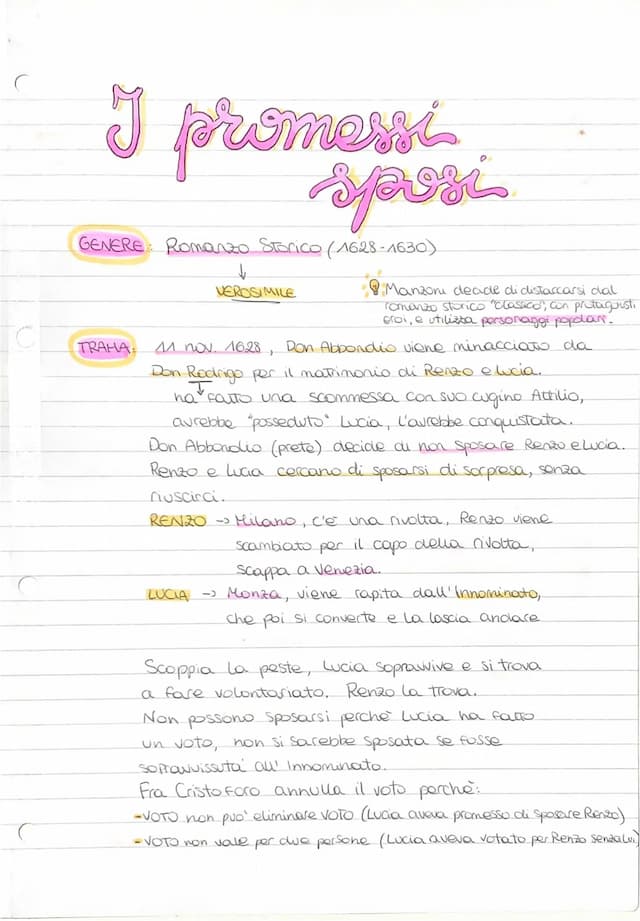 I promessi
sposi
GENERE: Romanzo Storico (1628-1630)
↓
VEROSIMILE
Manzoni decide di distaccarsi dal
romanzo storico "classico", con protagonisti
eroi, e utilizza personaggi popolari.
TRAMA: 11 nov. 1628, Don Abbondio viene minacciato da
Don Rodrigo per il matrimonio di Renzo e Lucia.
ha fatto una scommessa con suo cugino Attilio,
avrebbe "posseduto" Lucia, l'avrebbe conquistata.
Don Abbondio (prete) decide di non sposare Renzo e Lucia.
Renzo e Lucia cercano di sposarsi di sorpresa, senza
riuscirci.
RENZO → Milano, c'è una rivolta, Renzo viene
scambiato per il capo della rivolta,
scappa a Venezia.
LUCIA → Monza, viene rapita dall'Innominato,
che poi si converte e la lascia andare
Scoppia la peste, Lucia sopravvive e si trova
a fare volontariato. Renzo la trova.
Non possono sposarsi perchè Lucia ha fatto
un voto, non si sarebbe sposata se fosse
sopravvissuta all'Innominato.
Fra Cristoforo annulla il voto perchè:
-VOTO non può eliminare VOTO (Lucia aveva promesso di sposare Renzo)
-VOTO non vale per due persone (Lucia aveva votato per Renzo senza lui)